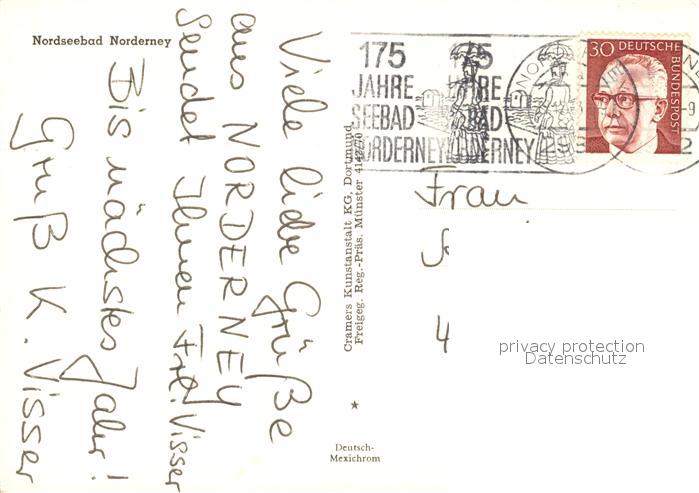 Nordseebad Norderney
Viele liebe Grüße
aus NORDERNEY
sendet Ihnen Frl. Visser
Bis nächstes Jahr!
Gruß K. Visser
Cramers Kunstanstalt KG, Dortmund
Freigeg. Reg.-Präs. Münster
Deutsch-
Mexichrom
175
JAHRE
SEEBAD
NORDERNEY
75
HRE
BAD
DERNEY
30 DEUTSCHE
BUNDESPOST
Frau
4
privacy protection
Datenschutz